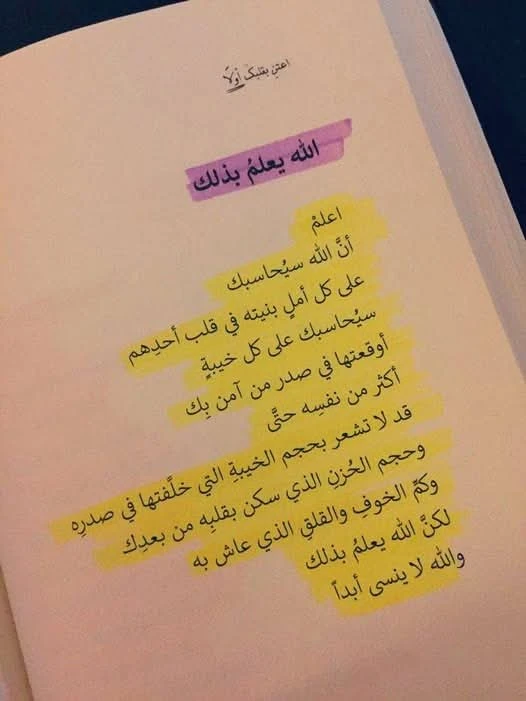 اعتنِ بقلبك أولًا
الله يعلمُ بذلك
اعلمْ
أنَّ الله سيُحاسبك
على كل أملٍ بنيته في قلب أحدِهم
سيُحاسبك على كل خيبةٍ
أوقعتها في صدر من آمن بِك
أكثر من نفسِه حتَّى
قد لا تشعر بحجم الخيبةِ التي خلَّفتها في صدرِه
وحجم الحُزنِ الذي سكن بقلبِه من بعدِك
وكمِّ الخوفِ والقلقِ الذي عاش به
لكنَّ الله يعلمُ بذلك
والله لا ينسى أبداً